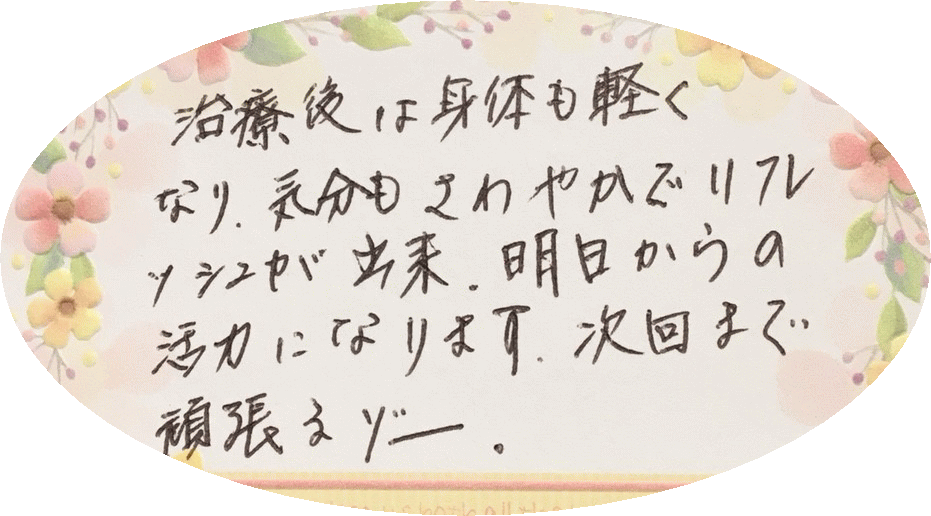 治療後は身体も軽く
なり、気分もさわやかでリフレ
ッシュが出来、明日からの
活力になります。次回まで
頑張るゾー。